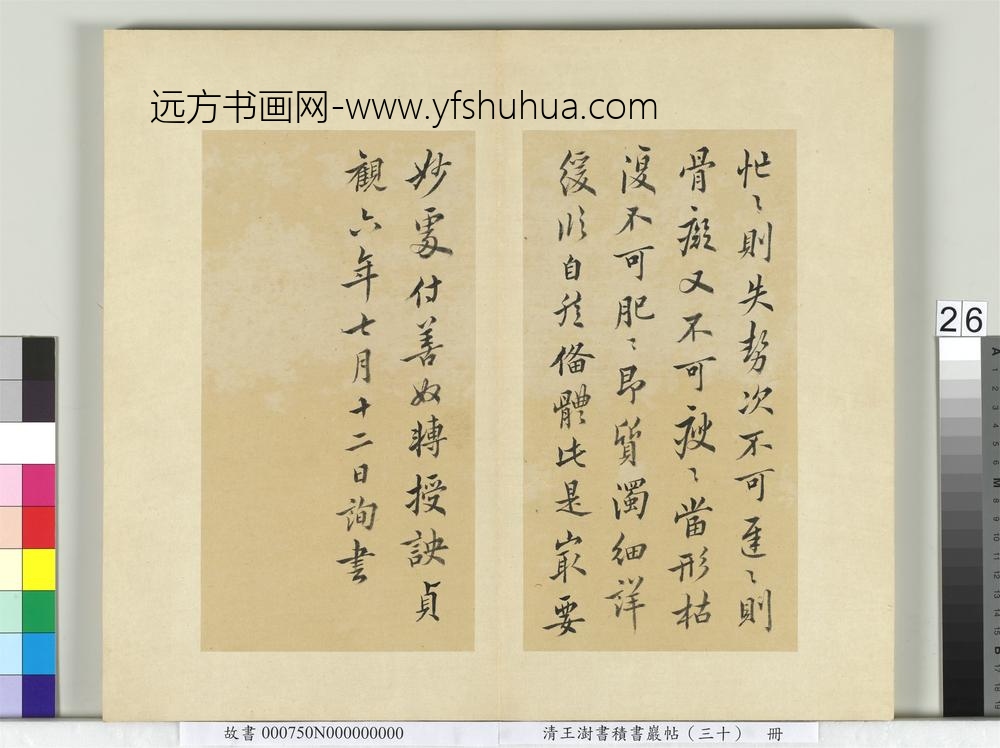 远方书画网-www.yfshuhua.com
忙〻則失勢次不可遲〻則
骨癡又不可瘦〻當形枯
復不可肥〻即質濁細詳
緩臨自然俻體此是最要
妙處付善奴轉授訣貞
觀六年七月十二日詢書
26
A 1 2 3 4 5 M 8 9 10 11 12 13 14 15 B 17 18 19
故書 000750N000000000
清王澍書積書巖帖（三十） 冊